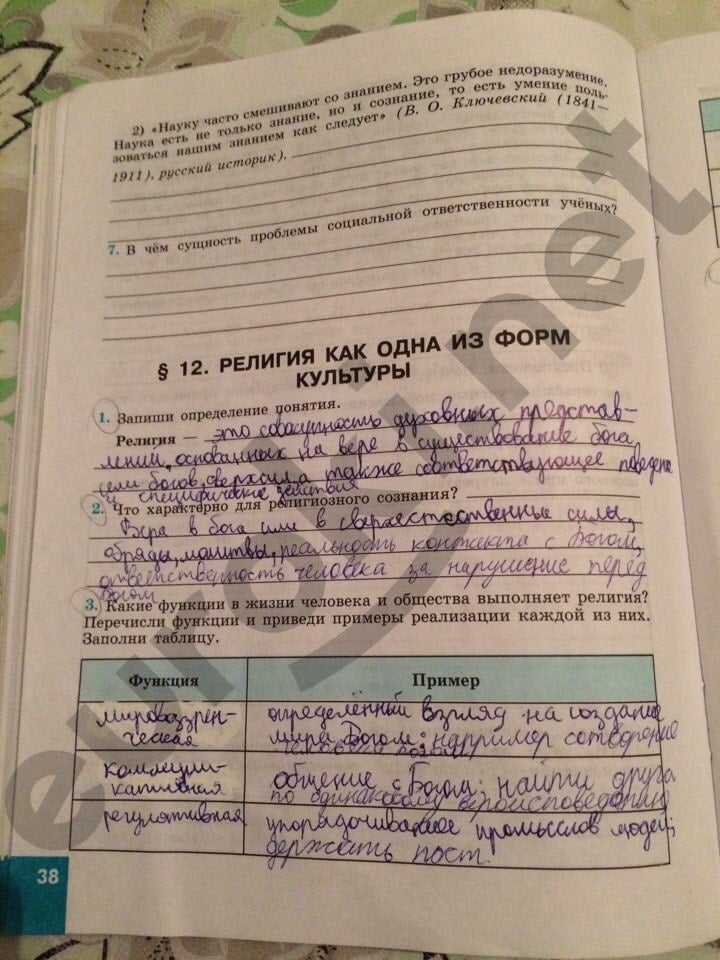 2) «Науку часто смешивают со знанием. Это грубое недоразумение.
Наука есть не только знание, но и сознание, то есть умение поль-
зоваться нашим знанием как следует» (В. О. Ключевский (1841—
1911), русский историк).
7. В чём сущность проблемы социальной ответственности учёных?
§ 12. РЕЛИГИЯ КАК ОДНА ИЗ ФОРМ
КУЛЬТУРЫ
1. Запиши определение понятия.
Религия — это совокупность духовных представ-
лений, основанных на вере в существование бога
или богов, сверхсил, а также соответствующее поведение
и специфические действия
2. Что характерно для религиозного сознания?
Вера в бога или в сверхестественные силы,
обряды, молитвы, реальность контакта с Богом,
ответственность человека за нарушение перед
богом
3. Какие функции в жизни человека и общества выполняет религия?
Перечисли функции и приведи примеры реализации каждой из них.
Заполни таблицу.
Функция Пример
мировоззрен-
ческая
определённый взгляд на создание
мира Богом: например сотворение
коммуни-
кативная
общение с Богом; найти друга
по одинаковому вероисповеданию
регулятивная
упорядочивание промыслов людей;
держать пост.
38
euroki.net